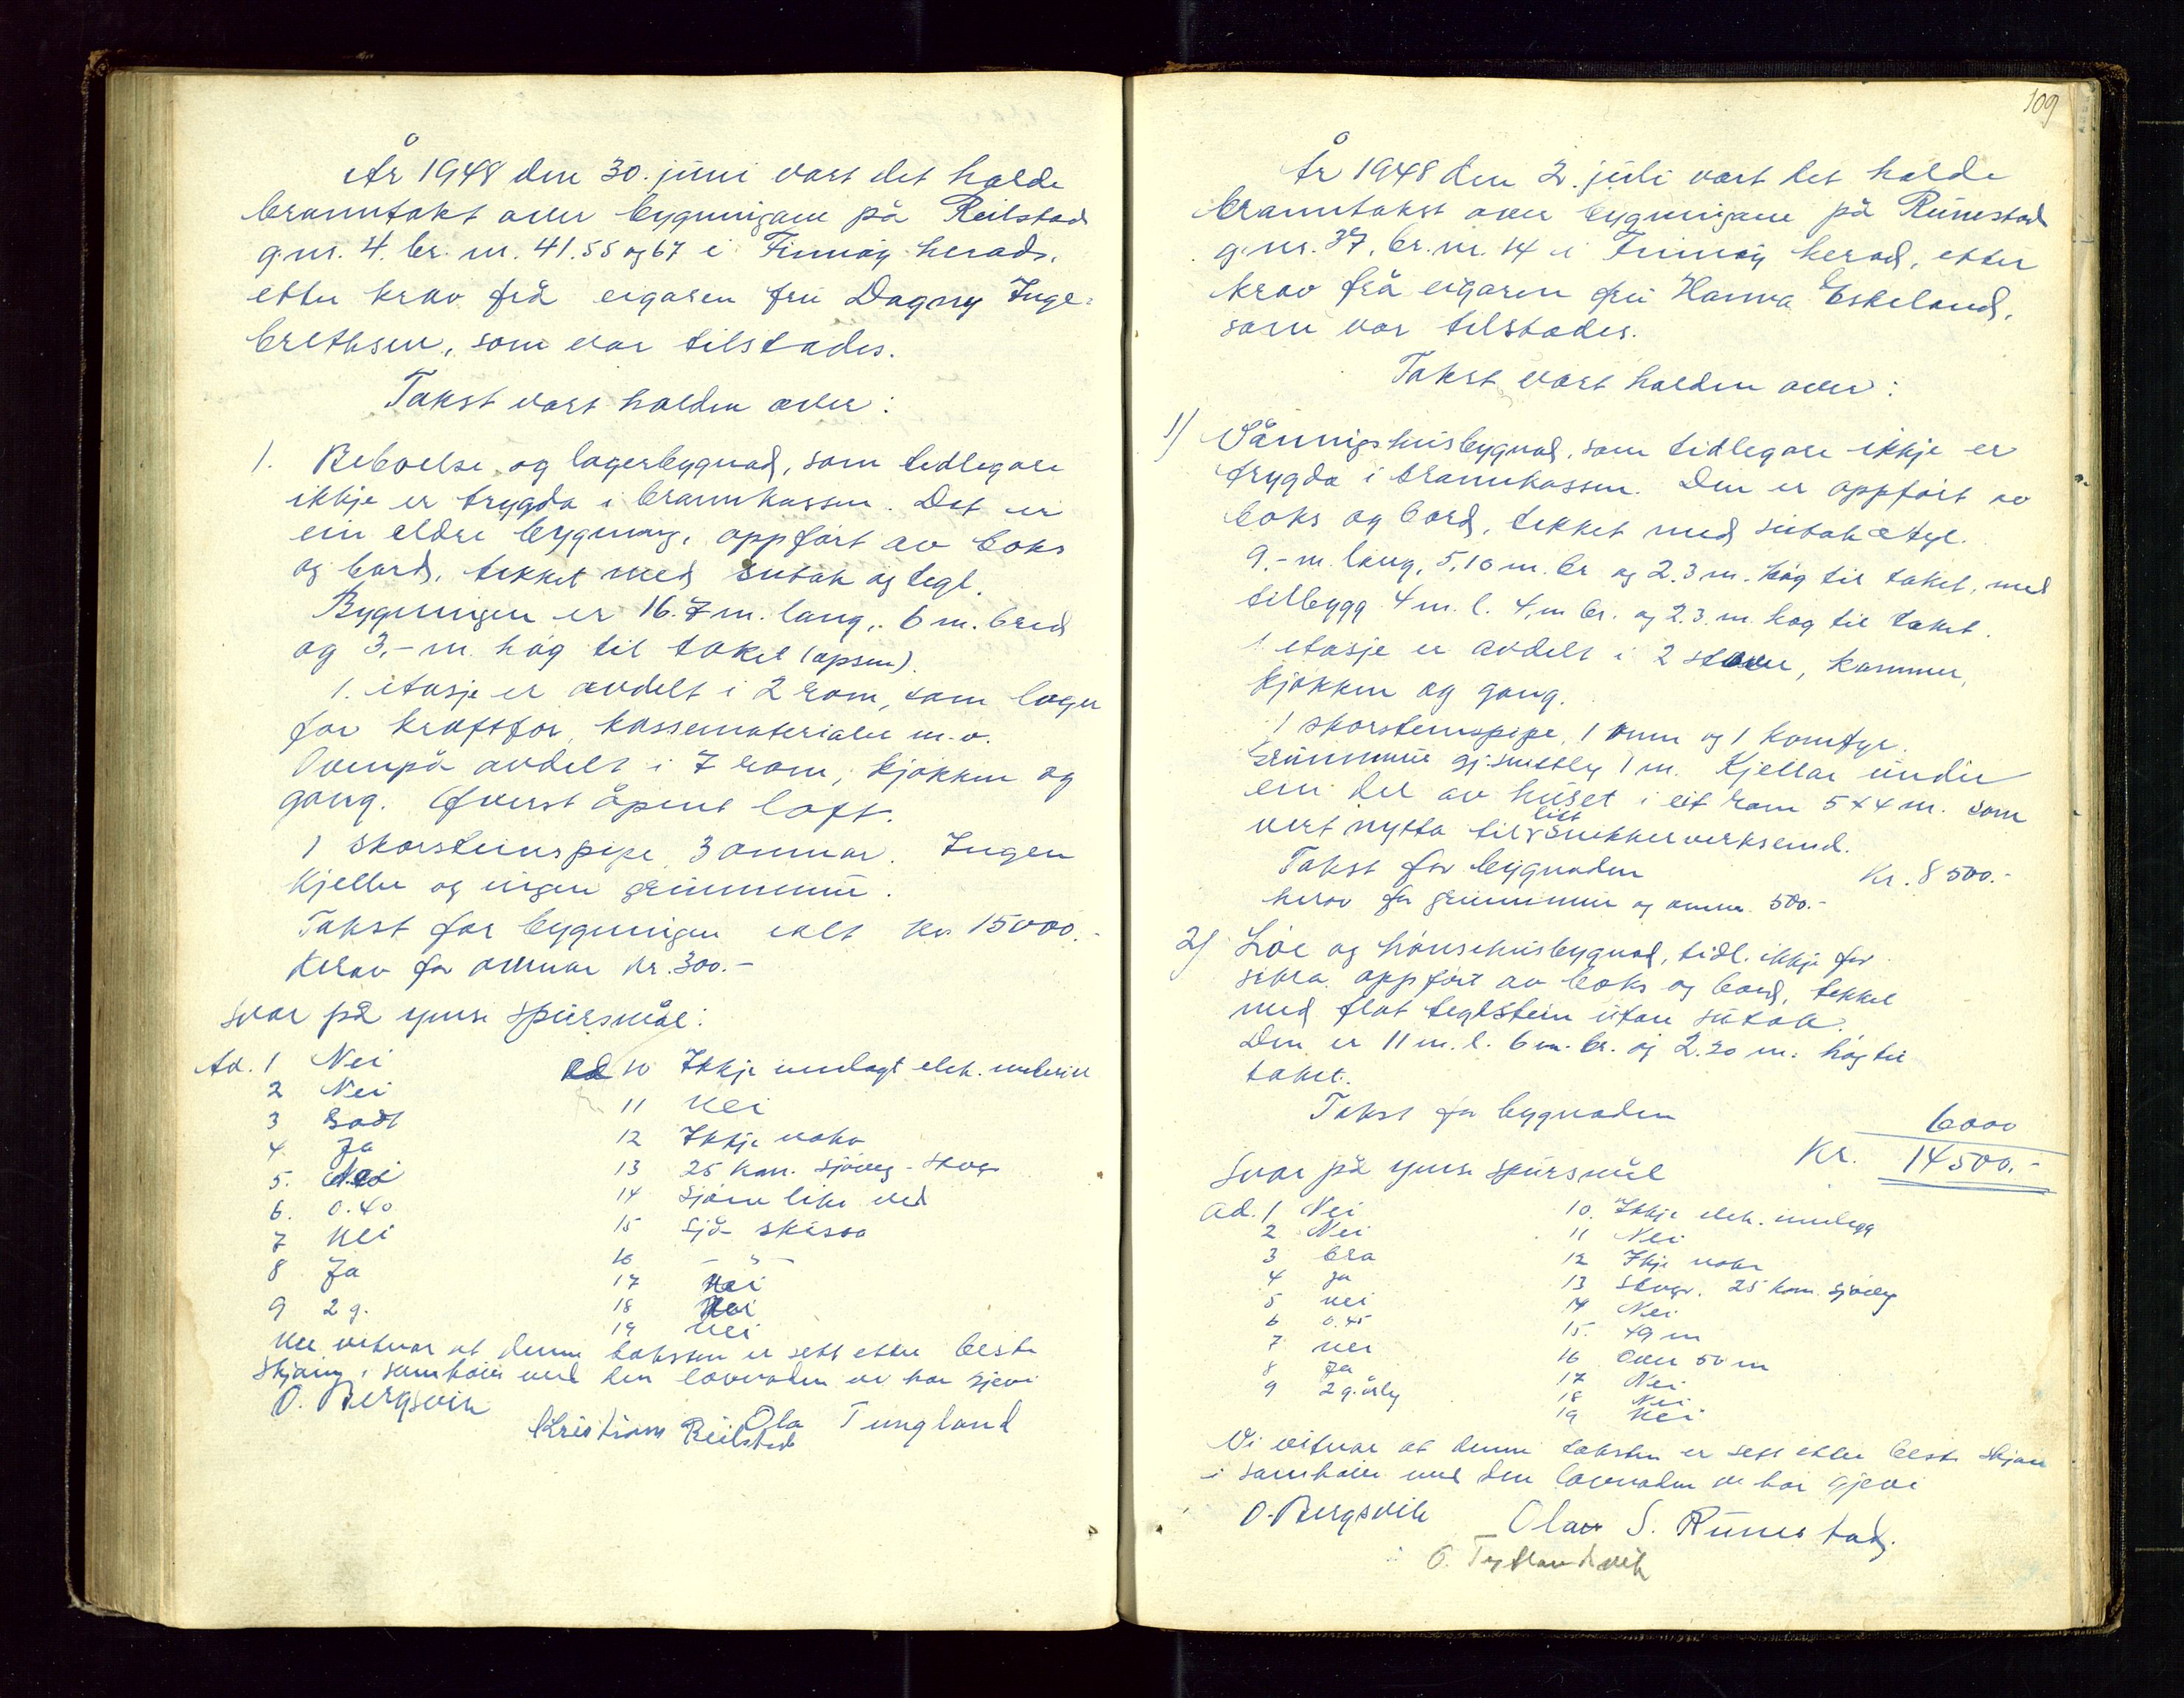 År 1948 den 30. juni vart det halde
branntakst over bygningane på Reilstad
g.nr. 4. br. nr. 41.55 og 67 i Finnøy herad.
etter krav frå eigaren frú Dagny Inge-
brethsen, som var tilstades.
Takst vart halden over:
1. Beboelse og lagerbygnad, som tidlegare
ikkje er trygda i brannkassen. Det er
ein eldre bygning, oppført av boks
og bord, tekket med sutak og tegl.
Bygningen er 16.7 m. lang, 6 m. bred
og 3,- m. høg til taket (opsen).
1. etasje er avdelt i 2 rom, som lager
for kraftfor, kassematerialer m.v.
Ovenpå avdelt i 7 rom, kjøkken og
gang. Øverst åpent loft.
1 skorsteinspipe, 3 omnar. Ingen
kjeller og ingen grunnmur.
Takst for bygningen ialt kr 15000.-
Herav for omnar kr. 300.-
Svar på ymse spursmål:
Ad. 1 Nei
2 Nei
3 Godt
4. Ja
5. Nei
6. 0.40
7 Nei
8 Ja
9 2 g.
ad 10 Ikkje innlagt elek.
11 Nei
12 Ikkje vakt
13 25 km. sjøveg - Stvgr
14 Sjøen like ved
15 Sjå skissa
16 - " -
17 Nei
18 Nei
19 Nei
Me vitnar at denne taksten er sett etter beste
skjønn i samhøve med den lovnaden vi har gjevi
O. Bergsvik
Kristian Reilstad Ola Tungland
109
År 1948 den 2. juli vart det halde
branntakst over bygningane på Runestad
g.nr. 37, br. nr. 14 i Finnøy herad, etter
krav frå eigaren frú Hanna Eskeland,
som var tilstades.
Takst vart halden over:
1) Våningshusbygnad, som tidlegare ikkje er
trygda i brannkassen. Den er oppført av
boks og bord, tekket med sutak & tgl.
9,- m. lang, 5,10 m. br og 2.3 m. høg til taket, med
tilbygg 4 m. l. 4, m br. og 2.3. m. høg til taket.
1 etasje er avdelt i 2 stover, kammer,
kjøkken og gang.
1 skorsteinspipe, 1 omn og 1 komfyr.
Grunnmur gj.snittleg 1 m. Kjellar under
ein del av huset i eit rom 5 x 4 m. som
vert nytta til litt snikkerverksemd.
Takst for bygnaden Kr. 8500.-
herav for grunnmur og omnar 500.-
2) Løe og hønsehusbygnad, tidl. ikkje for-
sikra. oppført av boks og bord, tekket
med flat teglstein utan sutak.
Den er 11 m. l. 6 m. br. og 2.20 m. høg til
taket.
Takst for bygnaden 6000
Kr. 14500.-
Svar på ymse spursmål
ad. 1 Nei
2 Nei
3 bra
4 ja
5 nei
6 0.45
7. nei
8 Ja
9 2 g. årleg
10. Ikkje elek. innlegg
11 Nei
12 Ikje vakt
13 Stvgr. 25 km. sjøveg
14 Nei
15. 49 m
16 Over 50 m
17 Nei
18 Nei
19 Nei
Vi vitnar at denne taksten er sett etter beste skjøn
i samhøve med den lovnaden vi har gjevi
O. Bergsvik Olav S. Runestad.